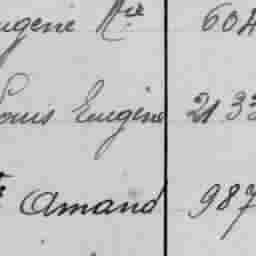 ugène Mie 604
Louis Eugène 2133
te Amand 987